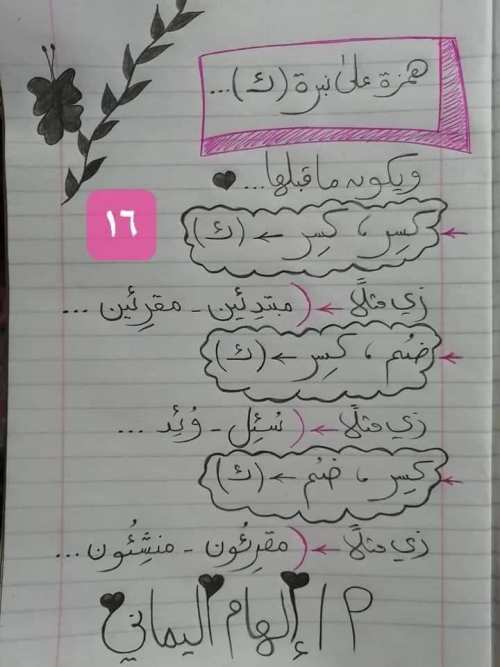 همزة على نبرة (ئ)...
ويكون ما قبلها...
١٦
كسِر ، كسِر ← (ئ)
زي مثلًا ← ( مبتدِئين - مقرِئين ...
ضُم ، كسِر ← (ئ)
زي مثلًا ← ( سُئِل - وُئِد ...
كسِر ، ضُم ← (ئ)
زي مثلًا ← ( مقرِئُون - منشِئُون ...
م / إلهام اليماني